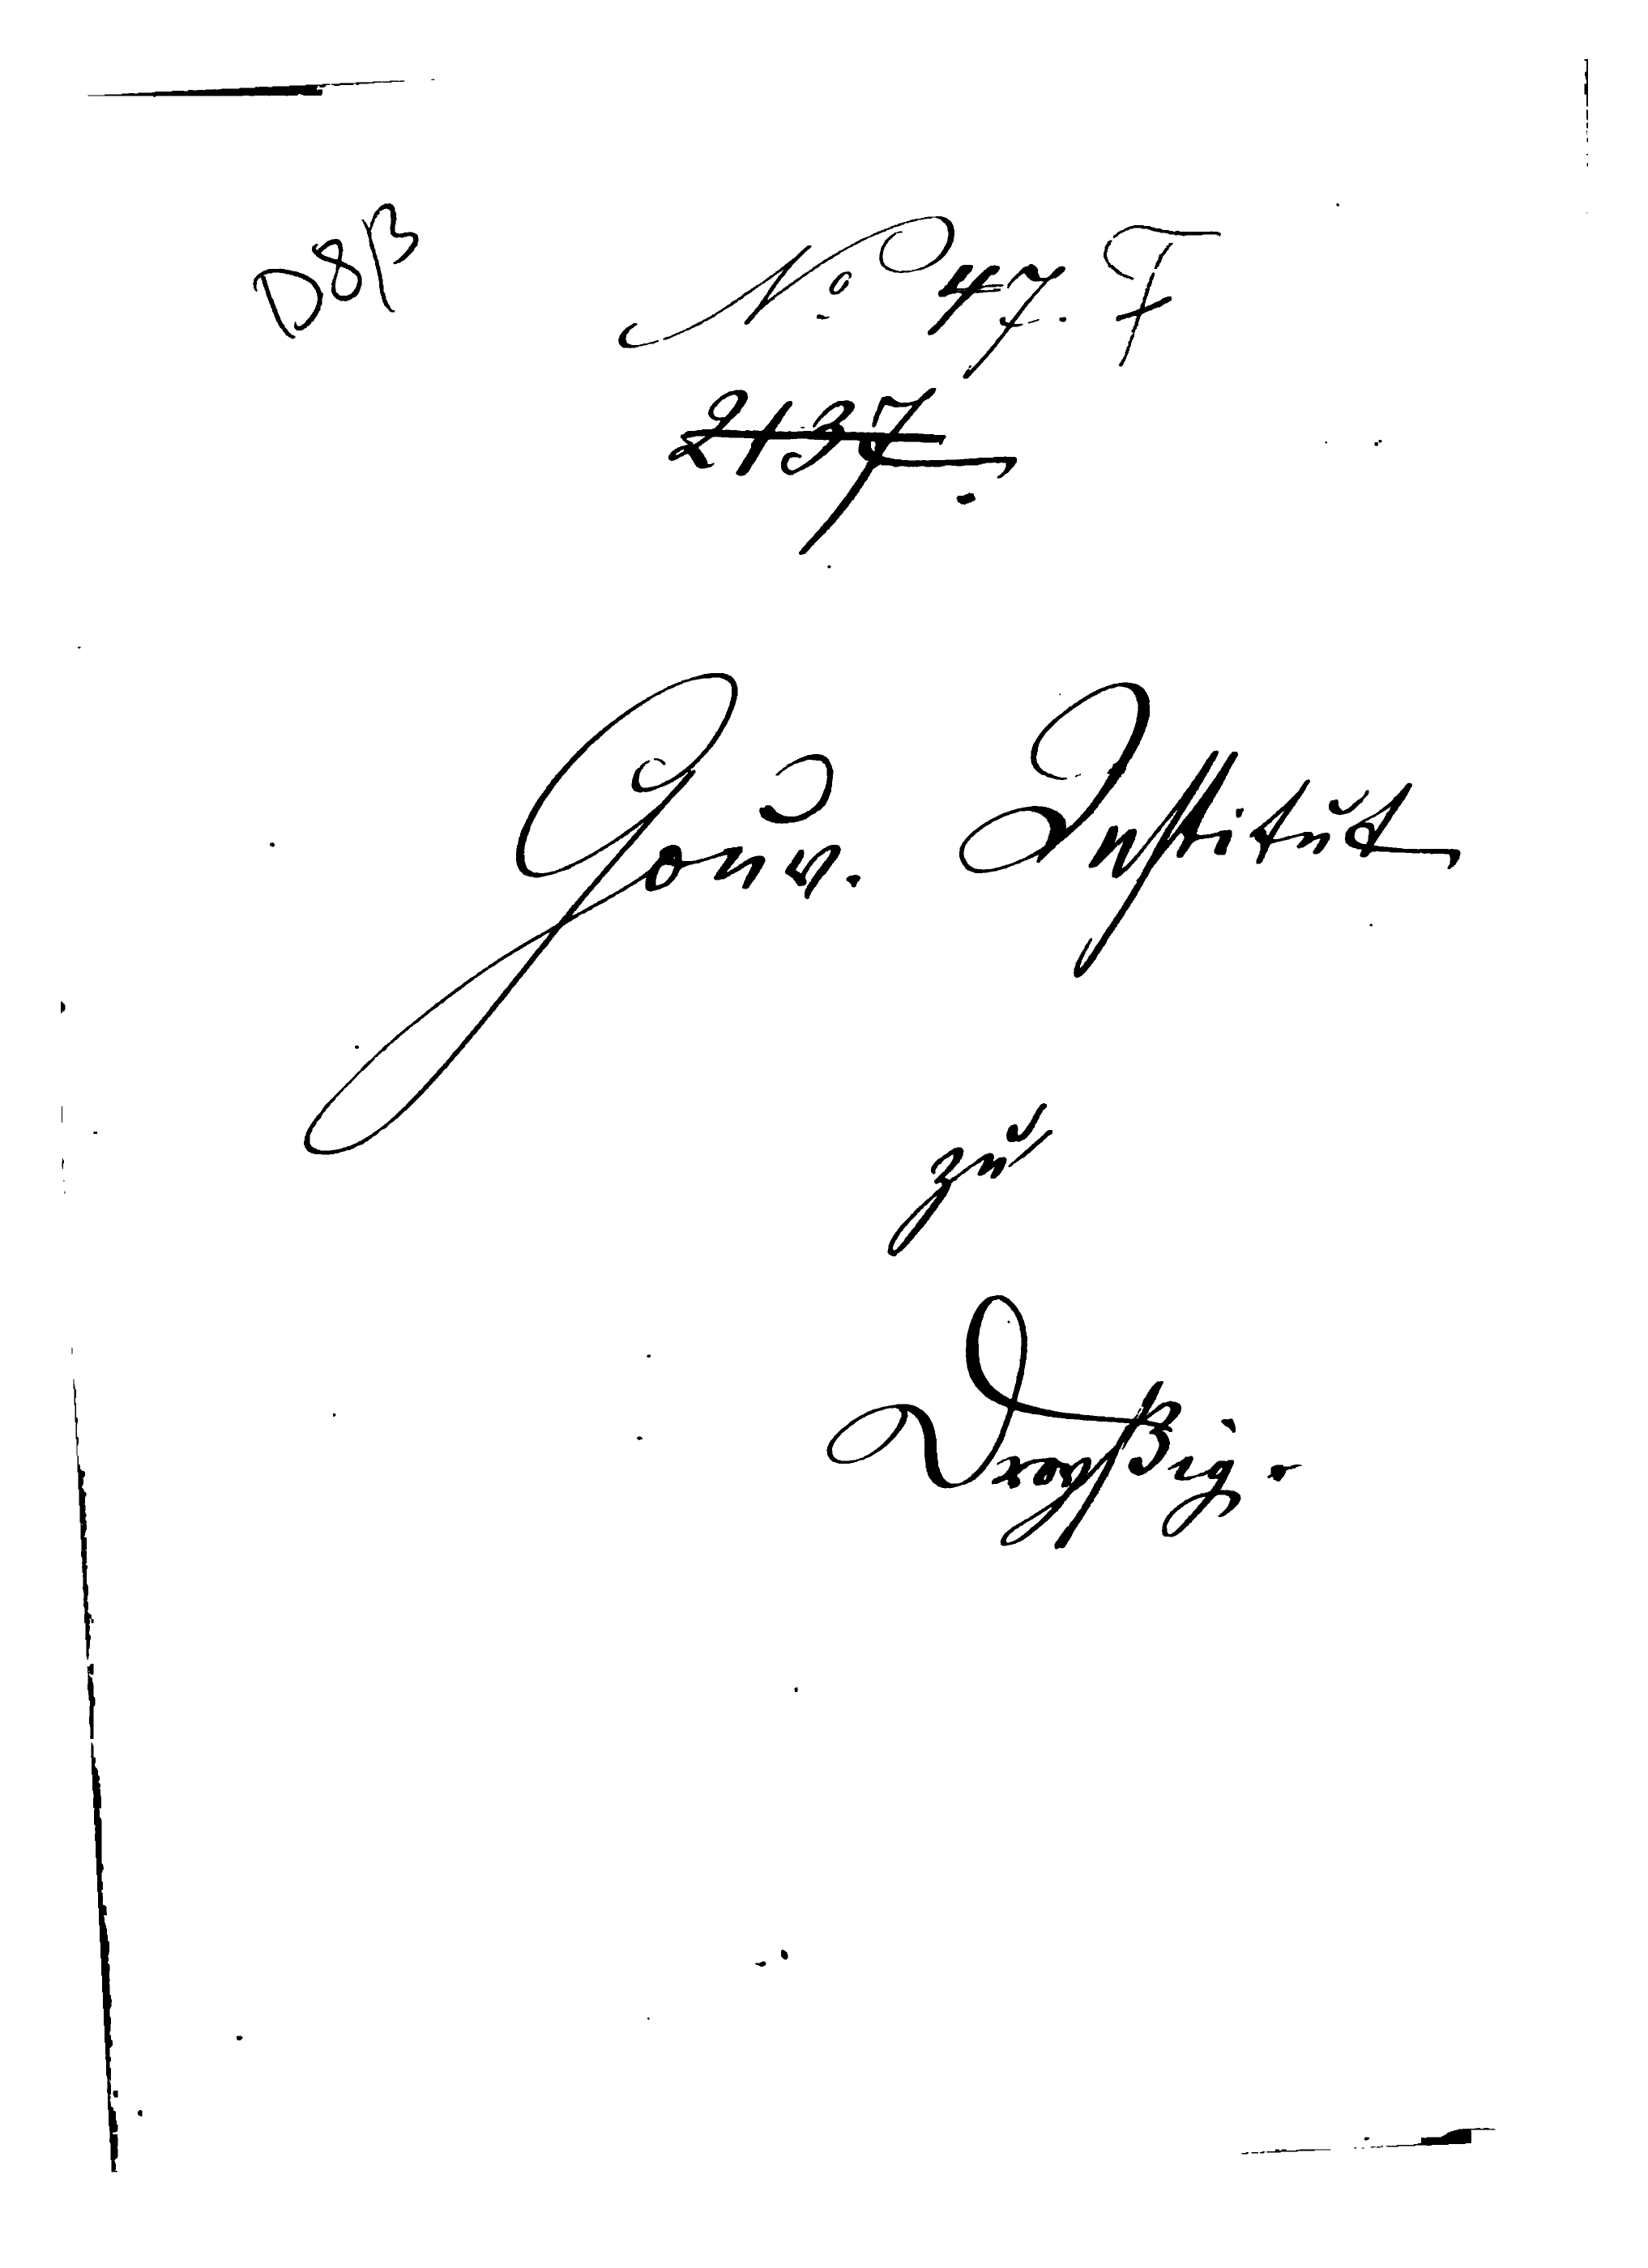 D8/3
No. 47. F
2137.
Gouv. Institut
zu
Droyßig.